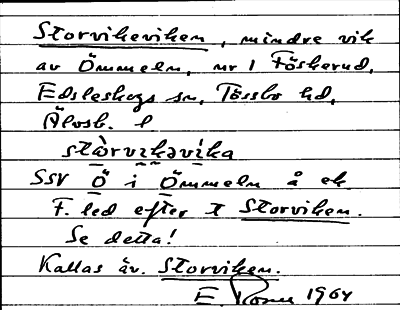 Storvikeviken, mindre vik
av Ömmeln, nr 1 Föskerud,
Edsleskogs sn, Tössbo hd,
Älvsb. l
stὼrvikəvi̇ka
SSV Ö i Ömmeln å ek.
F. led efter t Storviken.
Se detta!
Kallas äv. Storviken.
E. 1964